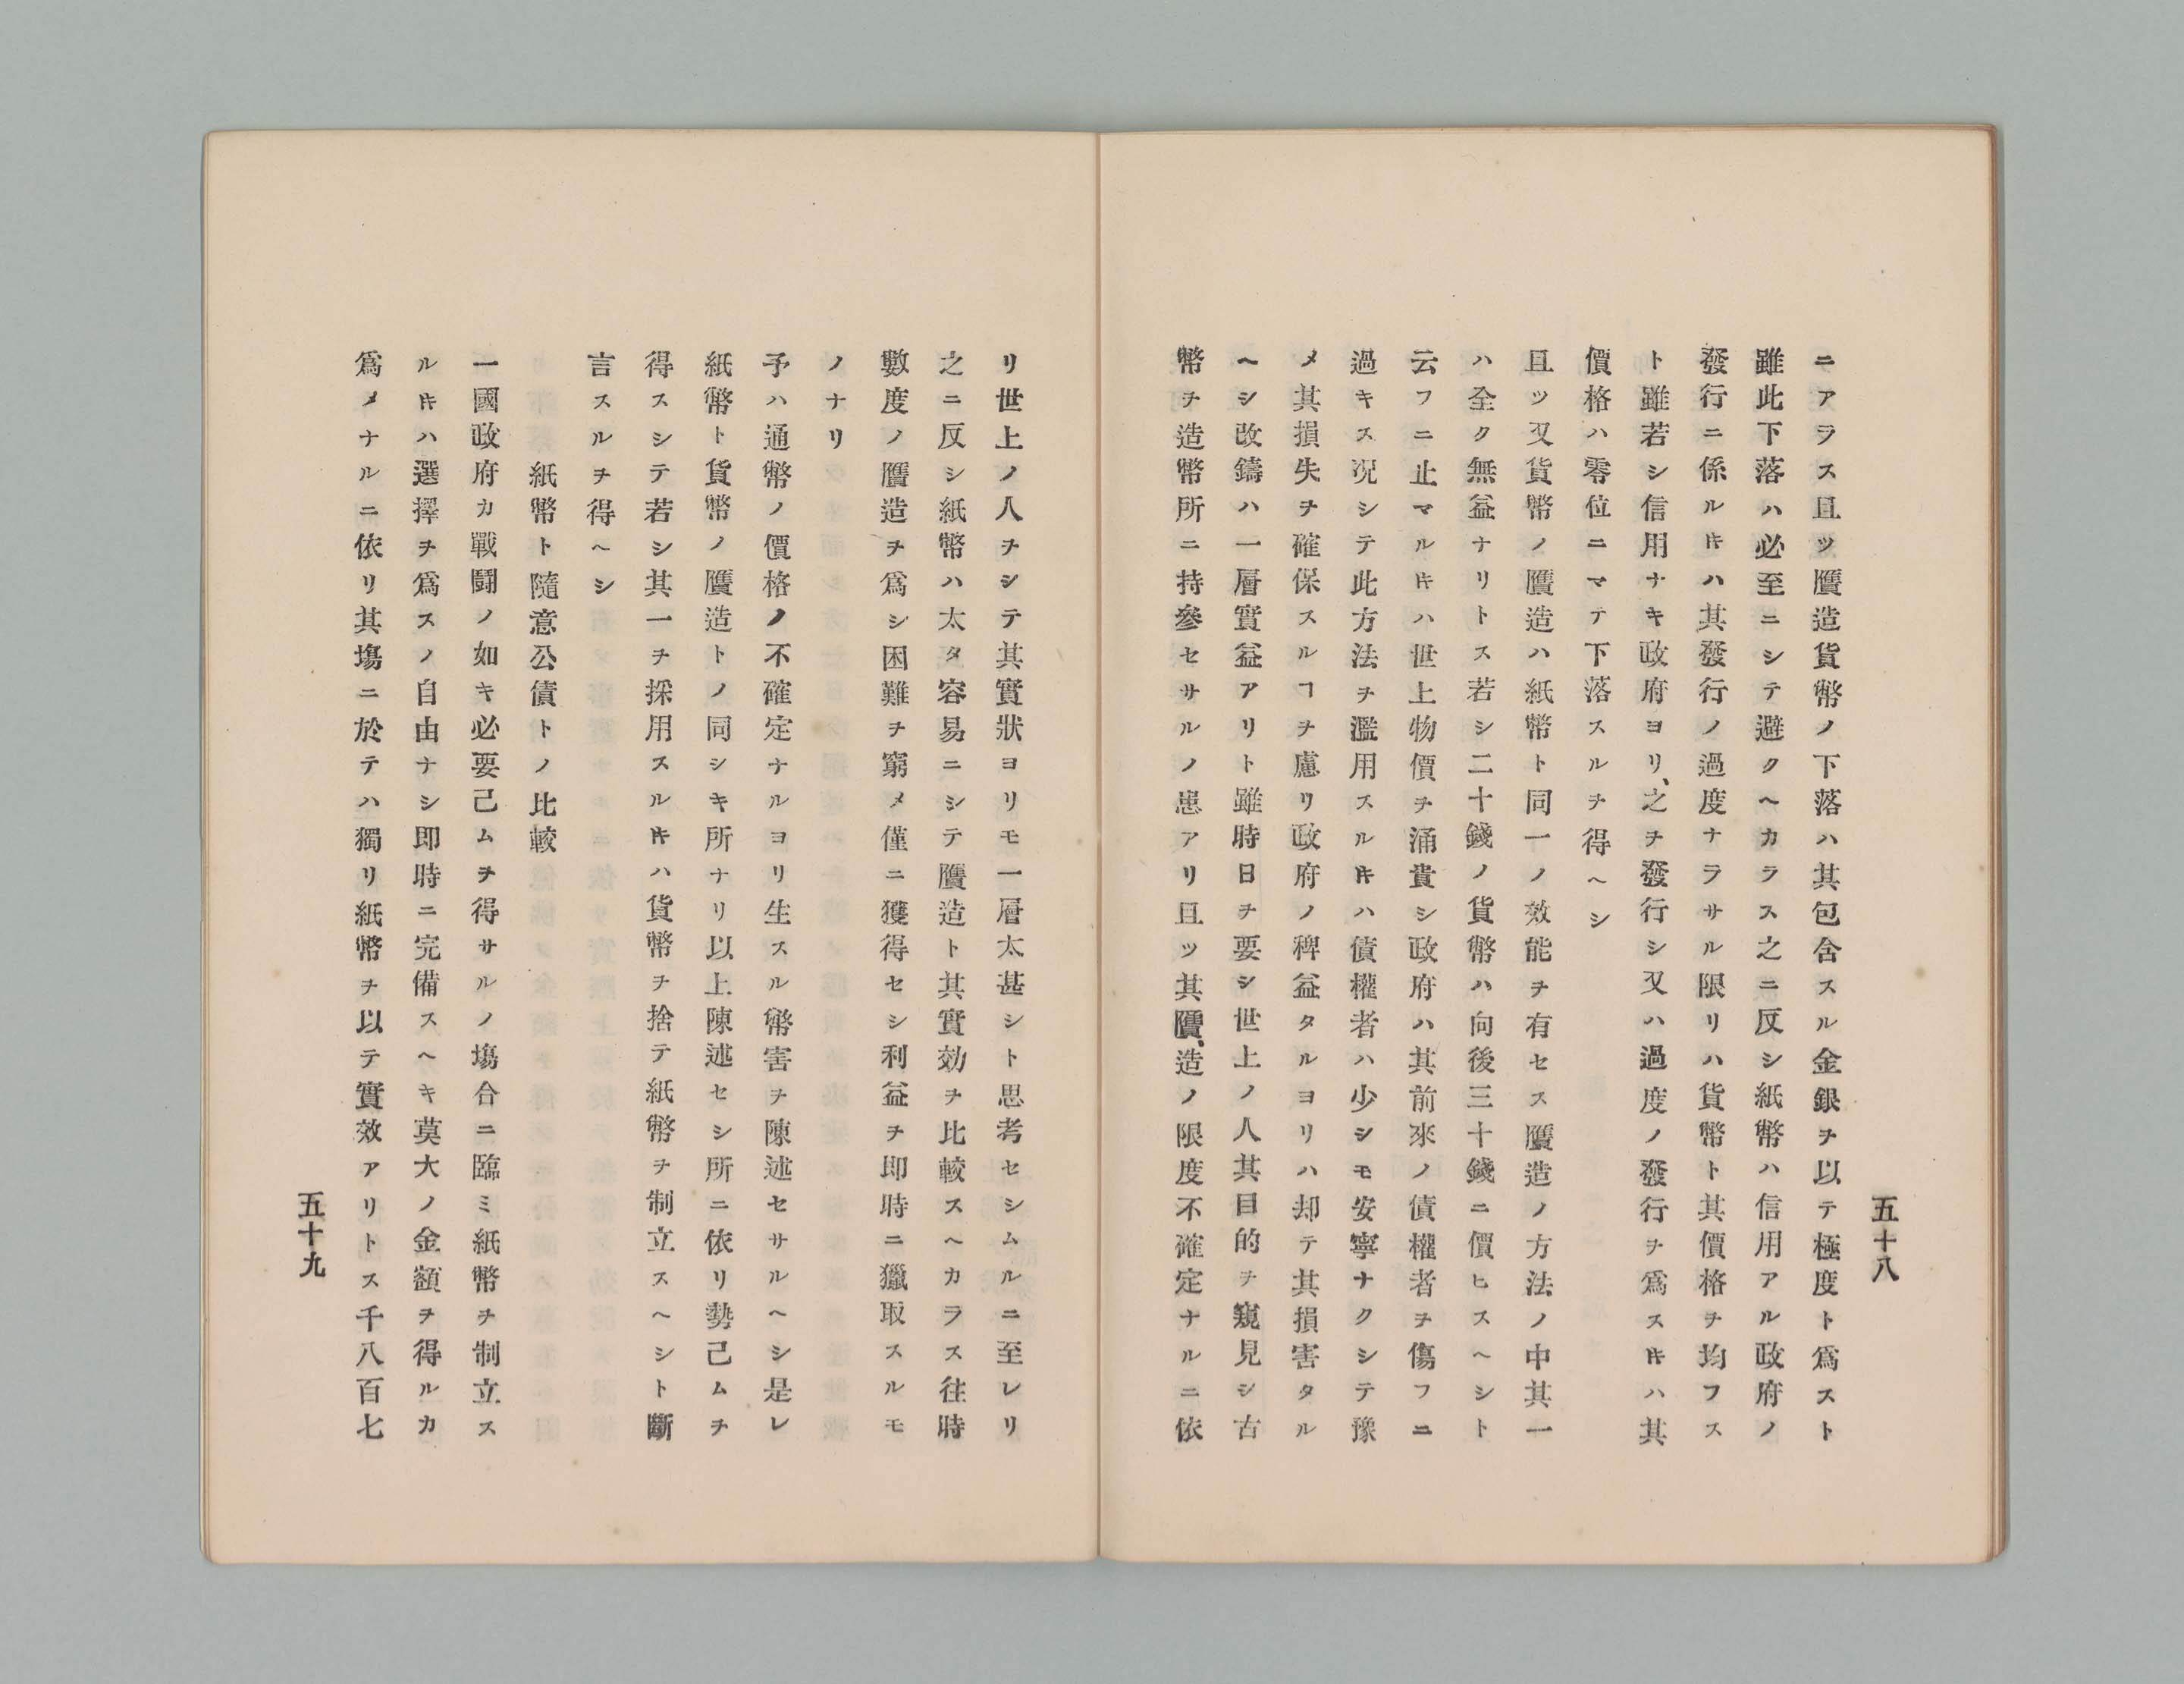 五十八
ニアラス且ツ贋造貨幣ノ下落ハ其包含スル金銀ヲ以テ極度ト爲スト
雖此下落ハ必至ニシテ避クヘカラス之ニ反シ紙幣ハ信用アル政府ノ
發行ニ係ルㇳキハ其發行ノ過度ナラサル限リハ貨幣ト其價格ヲ均フス
ト雖若シ信用ナキ政府ヨリ、之ヲ發行シ又ハ過度ノ發行ヲ爲スㇳキハ其
價格ハ零位ニマテ下落スルヲ得ヘシ
且ツ又貨幣ノ贋造ハ紙幣ト同一ノ效能ヲ有セス贋造ノ方法ノ中其一
ハ全ク無益ナリトス若シ二十錢ノ貨幣ハ向後三十錢ニ價ヒスヘシト
云フニ止マルㇳキハ世上物價ヲ涌貴シ政府ハ其前來ノ債權者ヲ傷フニ
過キス况シテ此方法ヲ濫用スルㇳキハ債權者ハ少シモ安寧ナクシテ豫
メ其損失ヲ確保スルヿヲ慮リ政府ノ稗益タルヨリハ却テ其損害タル
ヘシ改鑄ハ一層實益アリト雖時日ヲ要シ世上ノ人其目的ヲ窺見シ古
幣ヲ造幣所ニ持參セサルノ患アリ且ツ其贋、造ノ限度不確定ナルニ依
リ世上ノ人ヲシテ其實狀ヨリモ一層太甚シト思考セシムルニ至レリ
之ニ反シ紙幣ハ太タ容易ニシテ贋造ト其實効ヲ比較スヘカラス往時
數度ノ贋造ヲ爲シ困難ヲ窮メ僅ニ獲得セシ利益ヲ即時ニ獵取スルモ
ノナリ
予ハ通幣ノ價格ノ不確定ナルヨリ生スル幣害ヲ陳述セサルヘシ是レ
紙幣ト貨幣ノ贋造トノ同シキ所ナリ以上陳述セシ所ニ依リ勢己ムヲ
得スシテ若シ其一ヲ採用スルㇳキハ貨幣ヲ捨テ紙幣ヲ制立スヘシト斷
言スルヲ得ヘシ
紙幣ト隨意公債トノ比較
一國政府カ戰鬪ノ如キ必要己ムヲ得サルノ塲合ニ臨ミ紙幣ヲ制立ス
ルㇳキハ選擇ヲ爲スノ自由ナシ即時ニ完備スヘキ莫大ノ金額ヲ得ルカ
爲メナルニ依リ其塲ニ於テハ獨リ紙幣ヲ以テ實效アリトス千八百七
五十九